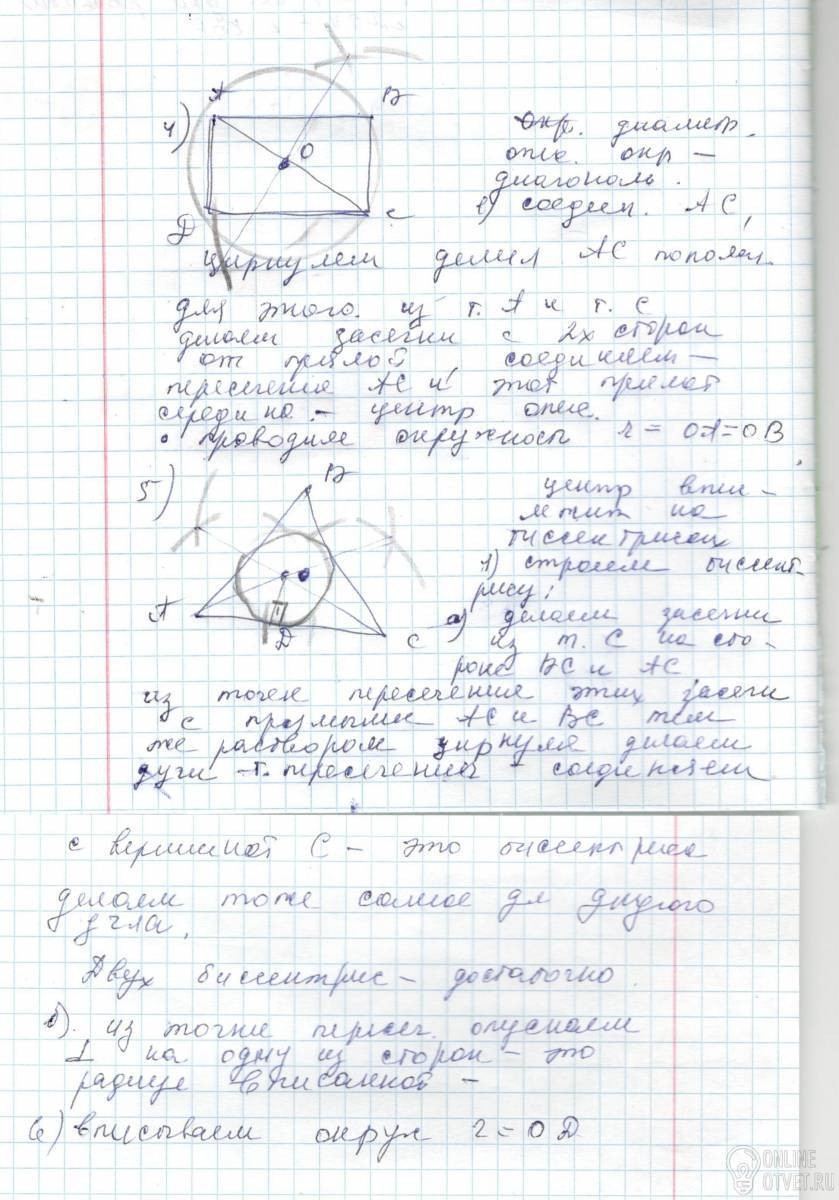 4)
А
В
О
D
С
окр. диаметр.
опис. окр –
диагональ.
1) соедин. АС,
циркулем делил АС пополам
для этого из т. А и т. С
делаем засечки с 2х сторон
от прямой, соединяем –
пересечение АС и этой прямой
середина – центр опис.
• проводим окружность r = OA = OB
5)
В
А
D
С
центр впис –
лежит на
биссектрисах
1) строем биссект-
рису:
а) делаем засечки
из т. С на сто-
роне ВС и АС
из точек пересечения этих засечк
с прямыми АС и ВС тем
же раствором циркуля делаем
дуги – т. пересечения – соединяем
с вершиной С – это биссектриса
делаем тоже самое дл другого
угла,
Двух биссектрис – достаточно.
б). из точки пересеч. опускаем
⊥ на одну из сторон – это
радиус вписанной –
в) вписываем окруж r = OD
ONLINE
OTVET.RU